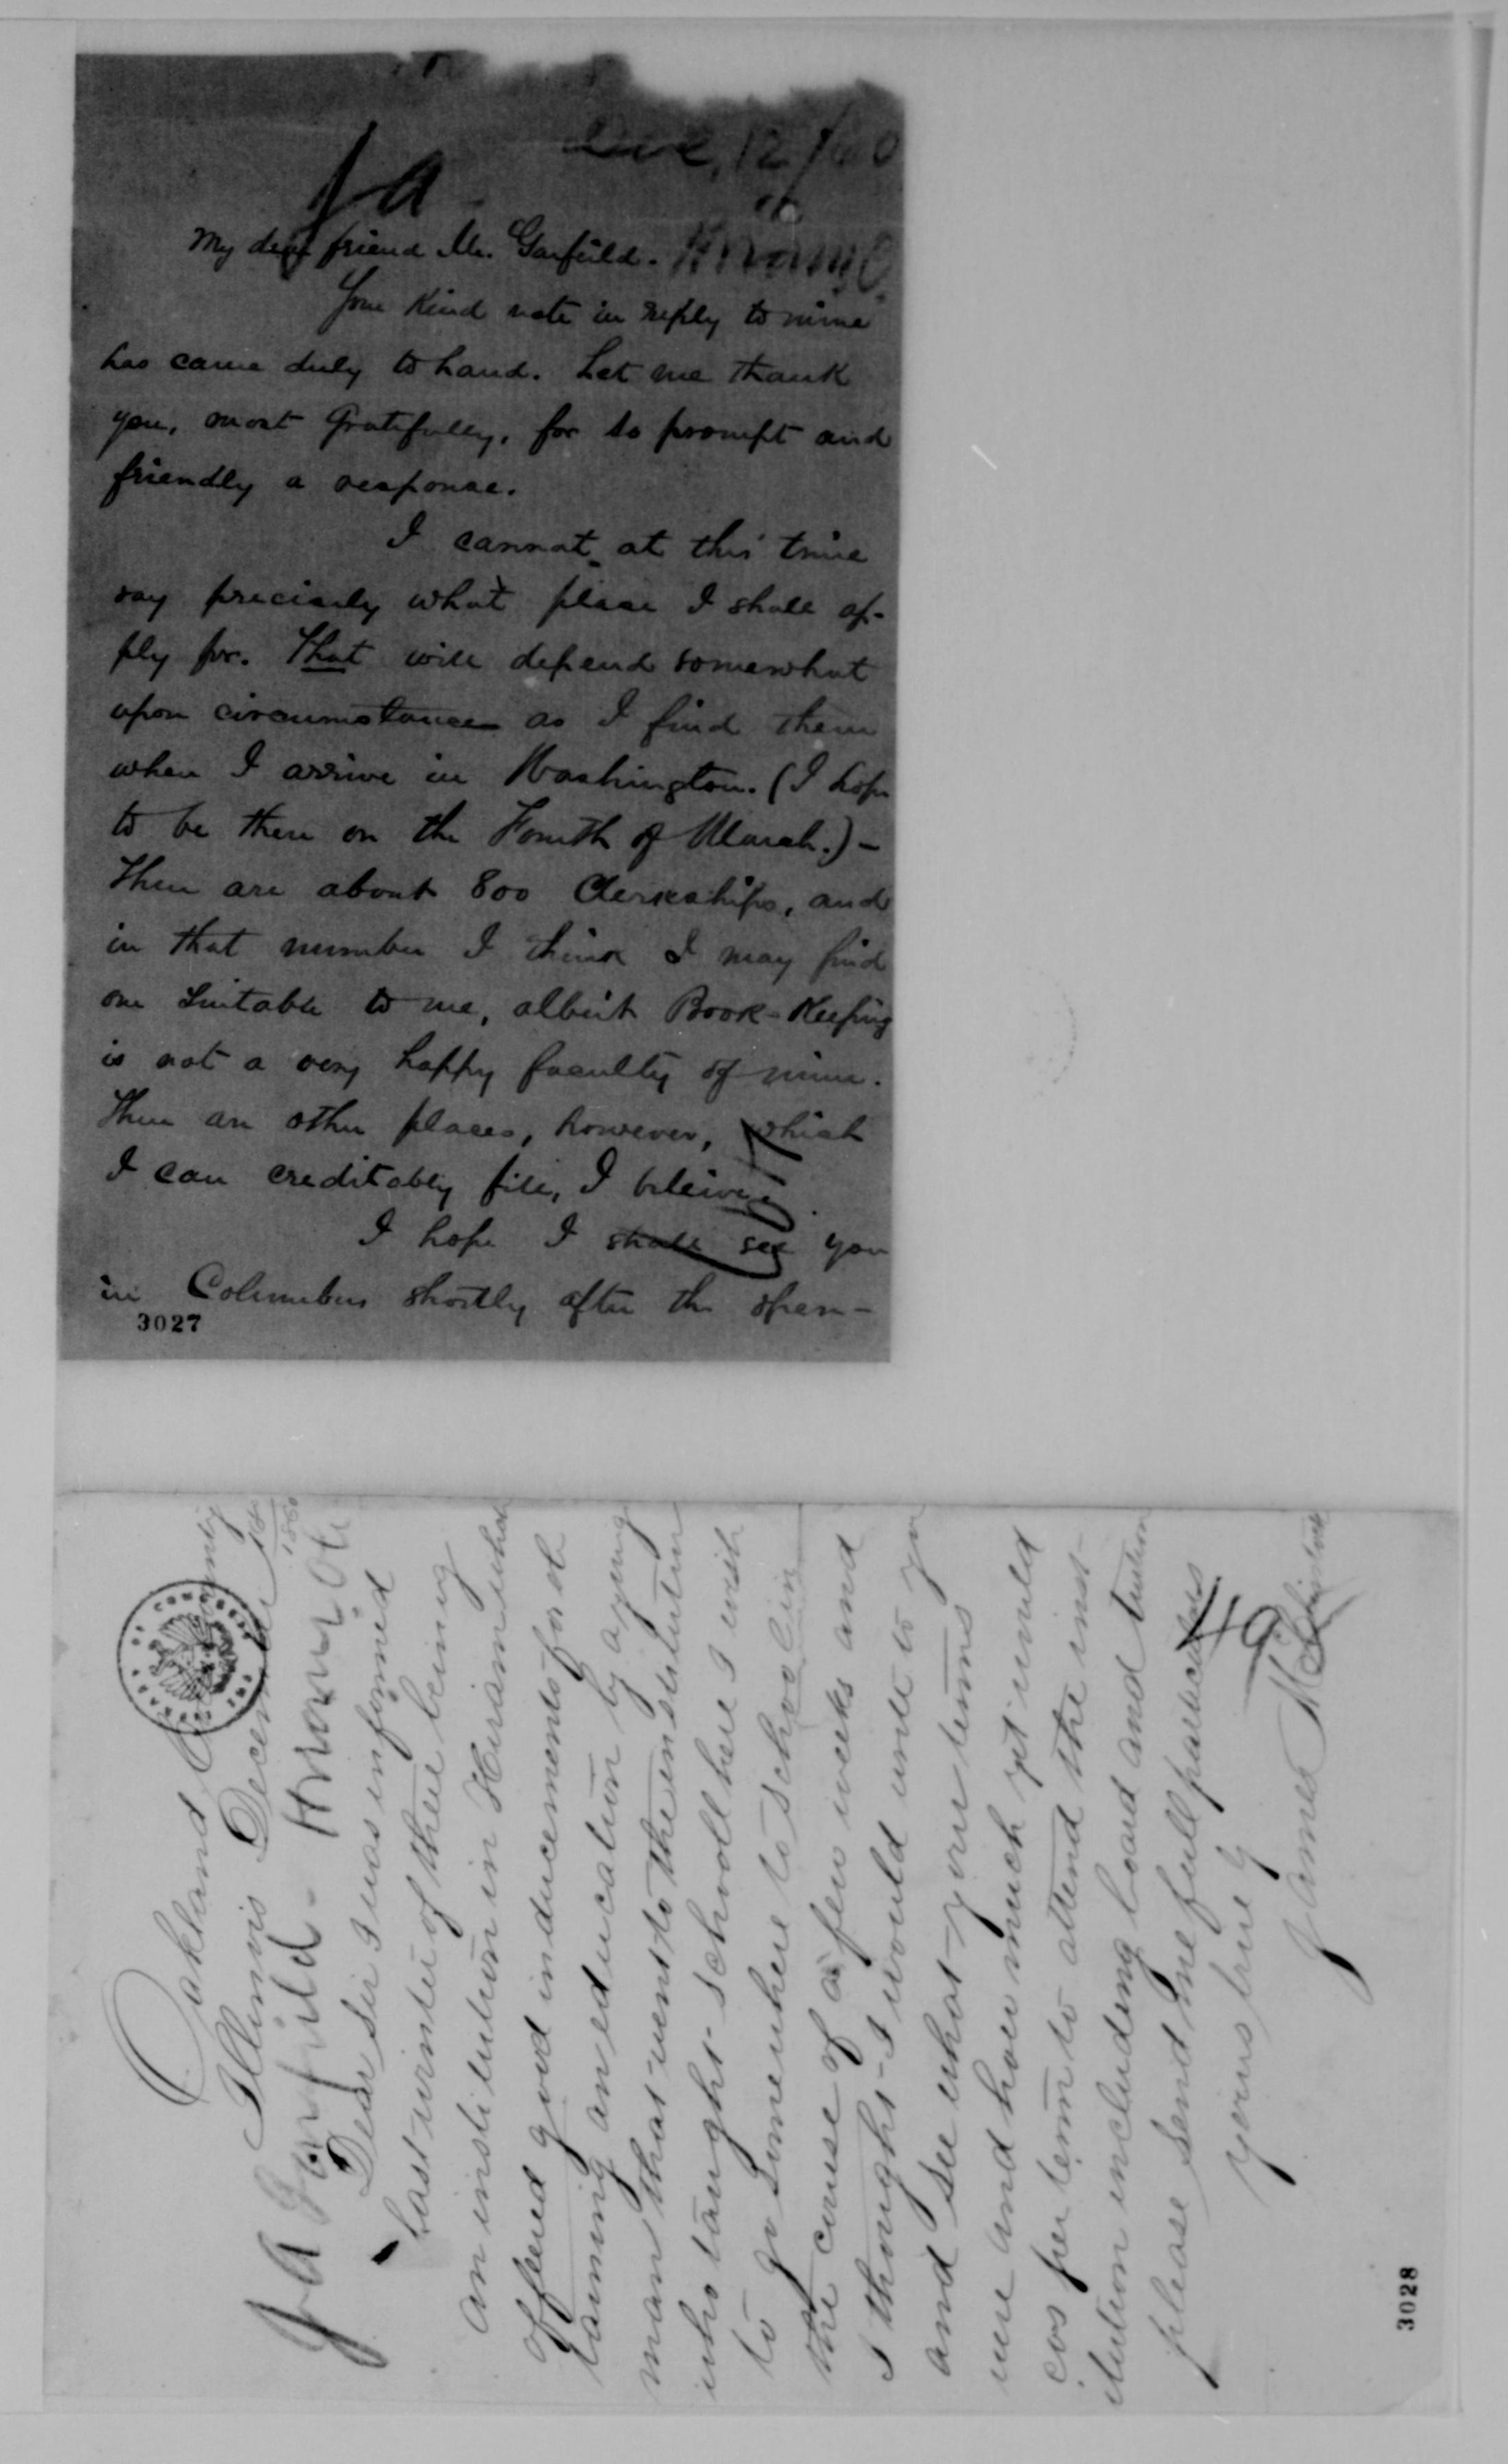 Dec, 12/60
Ja
Hiram O.
My dear friend Mr. Garfield.
Your kind note in reply to mine
has came duly to hand. Let me thank
you, most gratefully, for so prompt and
friendly a response.
I cannot at this time
say precisely what place I shall ap-
ply for. That will depend somewhat
upon circumstances as I find them
when I arrive in Washington. (I hope
to be there on the Fourth of March.) –
There are about 800 Clerkships, and
in that number I think I may find
one suitable to me, albeit Book-Keeping
is not a very happy faculty of mine.
There are other places, however, which
I can creditably fill, I beleive.
I hope I shall see you
in Columbus shortly after the open-
3027
Oakland County
Illinois December 18
1860
J A Garfield - Hiram Oh
Dear Sir I was informed
Last winter of there being
an institution in Hiram what
offered good inducements for ob
taining an education by a young
man that went to the institution
who taught school here I wish
to go somewhere to school in
the course of a few weeks and
I thought I would write to you
and see what your terms
were and how much it would
cos per term to attend the inst-
itution including board and tuition
please send me full particulars
yours truly
James McClintock
49
3028